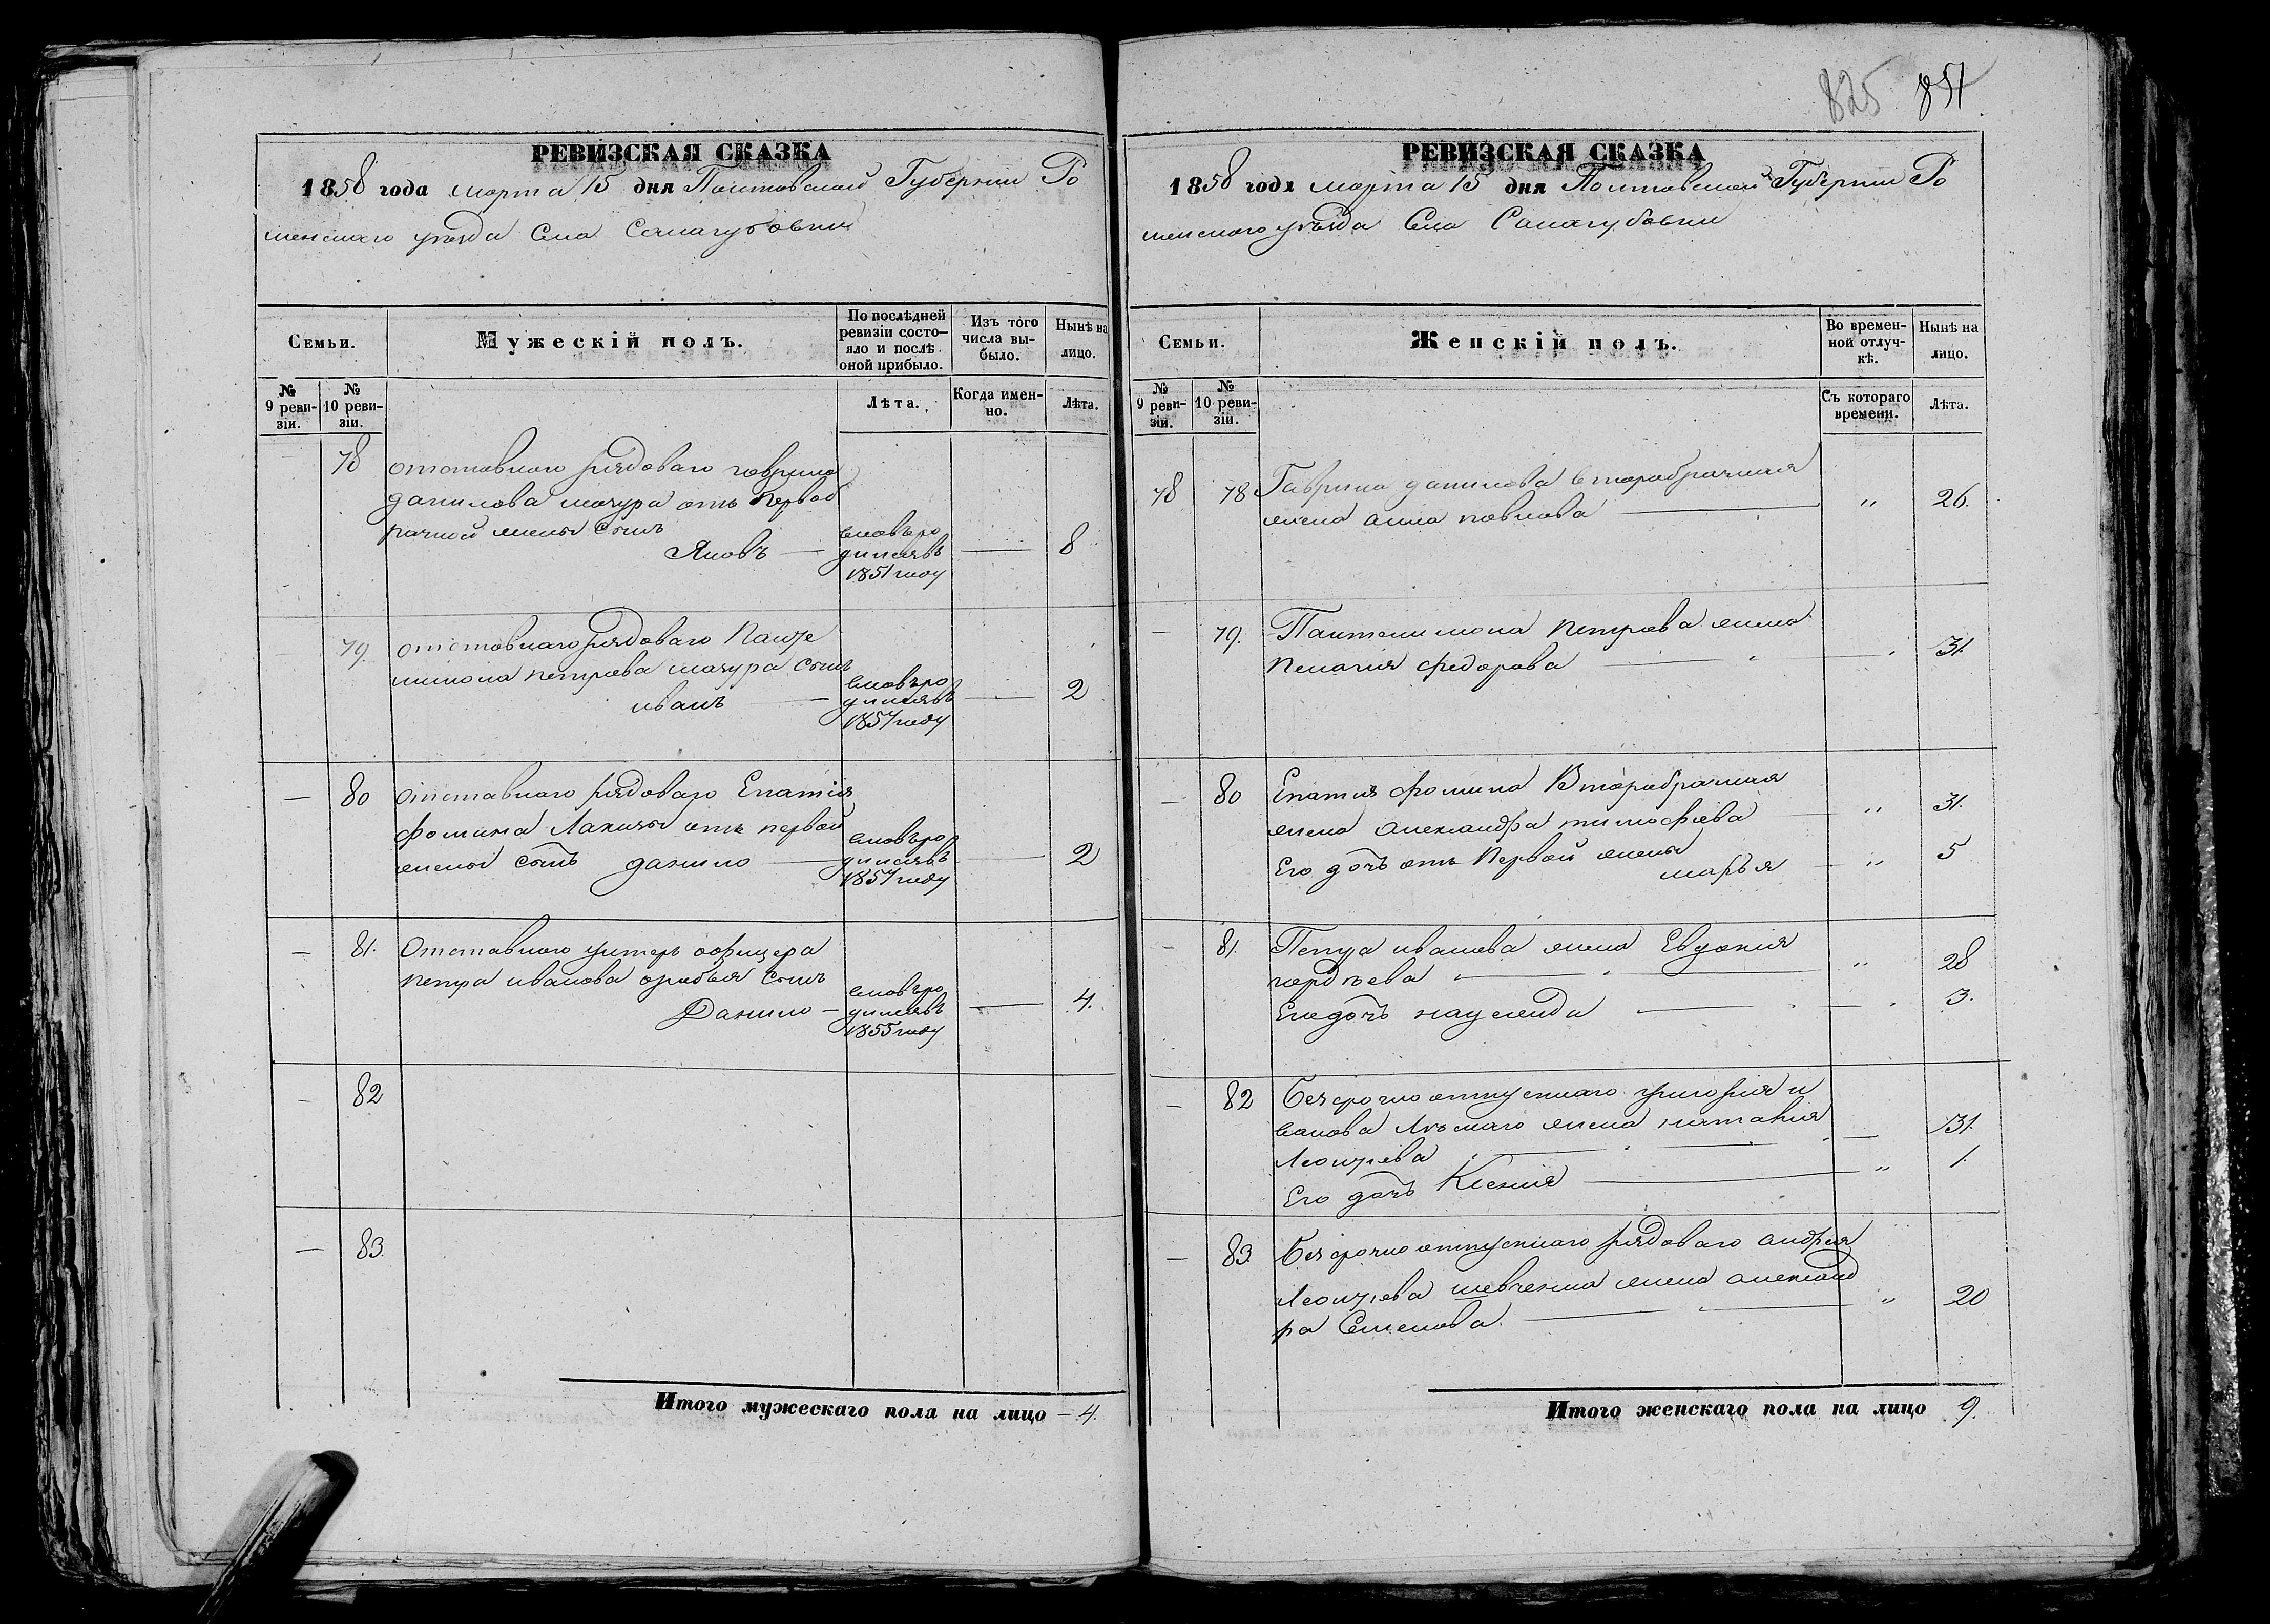 825 851
РЕВИЗСКАЯ СКАЗКА
1858 года марта 15 дня Полтавской Губернии Ро
менскаго уѣзда Села Самагубовки
Семьи.
Мужескій полъ.
По послѣдней
ревизіи состо-
яло и послѣ
оной прибыло.
Изъ того
числа вы-
было.
Нынѣ на
лицо.
№
9 реви-
зіи.
№
10 реви-
зіи.
Лѣта.
Когда имен-
но.
Лѣта.
78 отставного рядоваго гаврила
данилова мачура отъ первоб
рачной жены сынъ
Яковъ — вновь ро
дился въ
1851 году — 8
79. отставнаго рядоваго Панте
лимона петрова мачура сынъ
иванъ — вновь ро
дился въ
1857 году — 2
— 80 отставнаго рядоваго Епатія
фомина Лакизы отъ первой
жены сынъ данило — вновь ро
дился въ
1857 году — 2
— 81. Отставного унтеръ офицера
петра иванова сынъ
Данило — вновь ро
дился въ
1855 году — 4.
— 82
— 83.
Итого мужескаго пола на лицо — 4.
РЕВИЗСКАЯ СКАЗКА
1858 года марта 15 дня Полтавской Губернии Ро
менского уѣзда Села Самагубовки
Семьи.
Женскій полъ.
Во времен-
ной отлуч-
кѣ.
Нынѣ на
лицо.
№
9 реви-
зіи.
№
10 реви-
зіи.
Съ котораго
времени.
Лѣта.
78 78 Гаврила данилова второбрачная
жена анна павлова — „ 26.
— 79. Пантелимона петрова жена
пелагия федорова — „ 31.
— 80 Епатия фомина Второбрачная
жена александра тимофѣева — „ 31.
Его дочь отъ первой жены
марья — „ 5
— 81. Петра иванова жена Евдокия
гордѣева — „ 28
Его дочь — 3.
— 82 безсрочно отпускнаго григория и
ванова жена наталия
Леонтьева — 31.
Его дочь Ксения — „ 1.
— 83. безсрочно отпускнаго рядоваго андрея
Леонтьева шевченка жена александ
ра Семенова — „ 20
Итого женскаго пола на лицо 9.